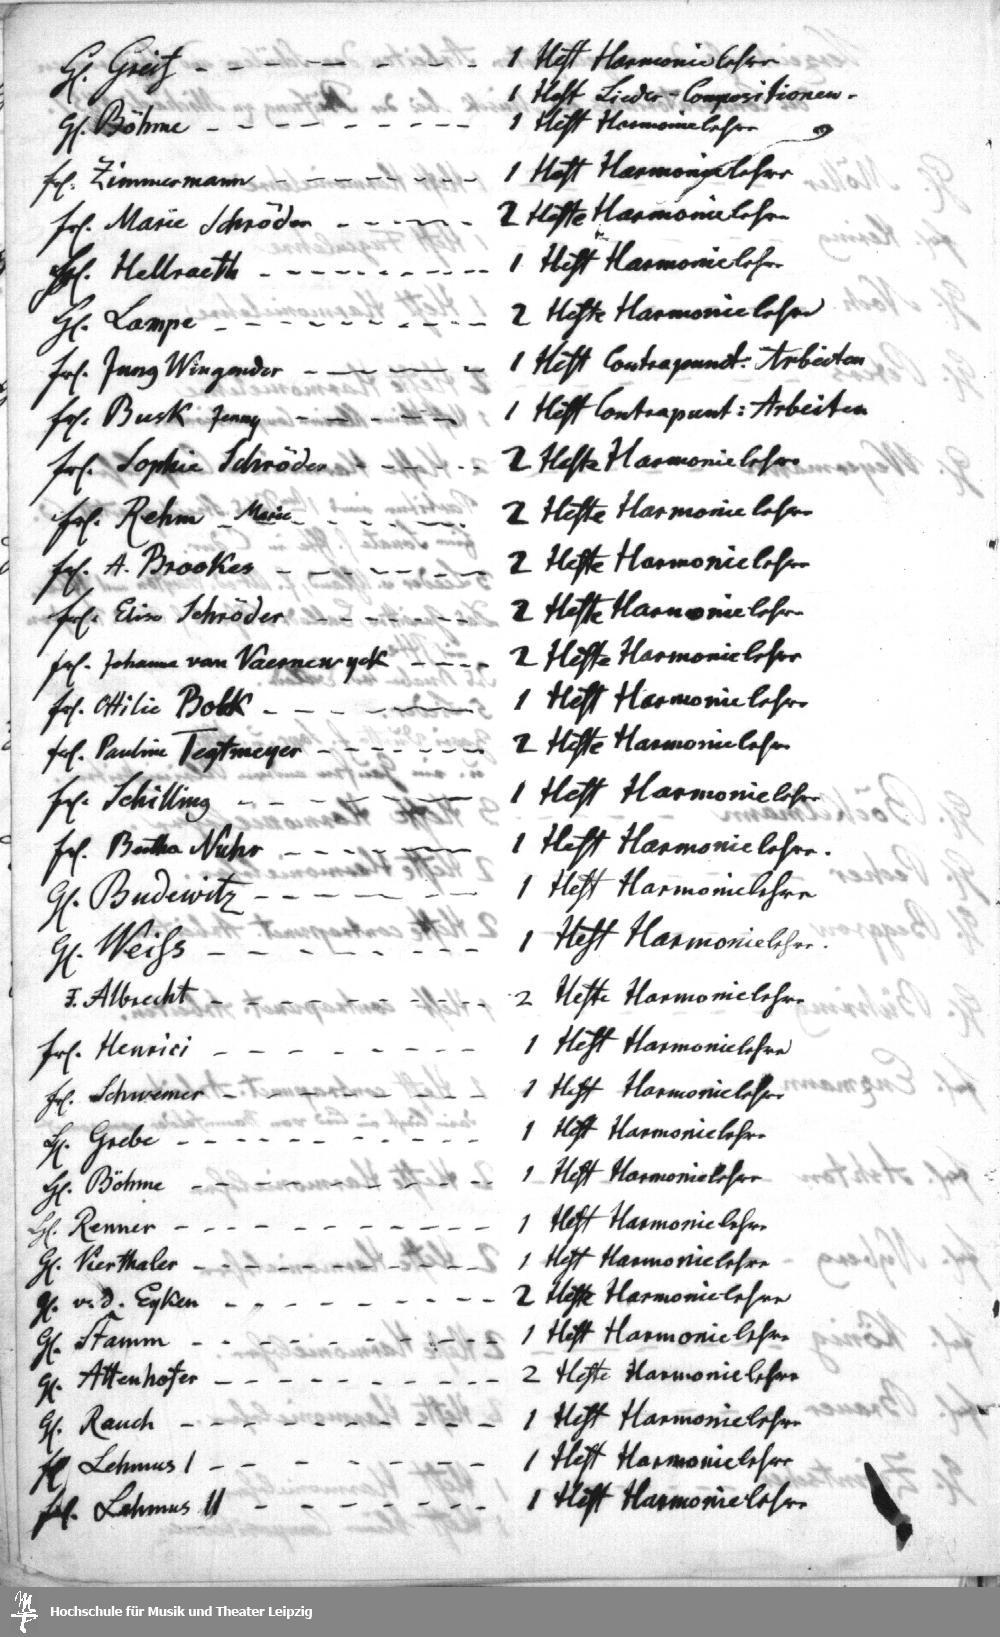 H. Greif - - - - - - - - 1 Heft Harmonielehre
1 Heft Lieder-Compositionen.
H. Böhme - - - - - - - - 1 Heft Harmonielehre
frl. Zimmermann - - - - - - 1 Heft Harmonielehre
frl. Marie Schröder - - - - - 2 Hefte Harmonielehre
frl. Hellraeth - - - - - - - - 1 Heft Harmonielehre
H. Lampe - - - - - - - - 2 Hefte Harmonielehre
frl. Jung Wingender - - - - - 1 Heft Contrapunct: Arbeiten
frl. Busk Jenny - - - - - 1 Heft Contrapunt: Arbeiten
frl. Sophie Schröder - - - - - 2 Hefte Harmonielehre
frl. Rehm Marie - - - - - - 2 Hefte Harmonielehre
frl. A. Brookes - - - - - - - 2 Hefte Harmonielehre
frl. Elise Schröder - - - - - - 2 Hefte Harmonielehre
frl. Johanna van Vaernewyck - - - - 2 Hefte Harmonielehre
frl. Ottilie Bolck - - - - - - 1 Heft Harmonielehre
frl. Pauline Tegtmeyer - - - - - - 2 Hefte Harmonielehre
frl. Schilling - - - - - - - 1 Heft Harmonielehre
frl. Bertha Nuhr - - - - - - 1 Heft Harmonielehre.
H. Budewitz - - - - - - - 1 Heft Harmonielehre
H. Weiss - - - - - - - - 1 Heft Harmonielehre.
F. Albrecht - - - - - - - - 2 Hefte Harmonielehre
frl. Henrici - - - - - - - - 1 Heft Harmonielehre
frl. Schwemer - - - - - - - - 1 Heft Harmonielehre
H. Grebe - - - - - - - - - 1 Heft Harmonielehre
H. Böhme - - - - - - - - 1 Heft Harmonielehre
H. Renner - - - - - - - - - 1 Heft Harmonielehre
H. Vierthaler - - - - - - - - - 1 Heft Harmonielehre
H. v. d. Eyken - - - - - - - - 2 Hefte Harmonielehre
H. Stamm - - - - - - - - - 1 Heft Harmonielehre
H. Attenhofer - - - - - - - - 2 Hefte Harmonielehre
H. Rauch - - - - - - - - - 1 Heft Harmonielehre
frl Lehmus I - - - - - - - 1 Heft Harmonielehre
frl. Lehmus II - - - - - - - 1 Heft Harmonielehre
Hochschule für Musik und Theater Leipzig